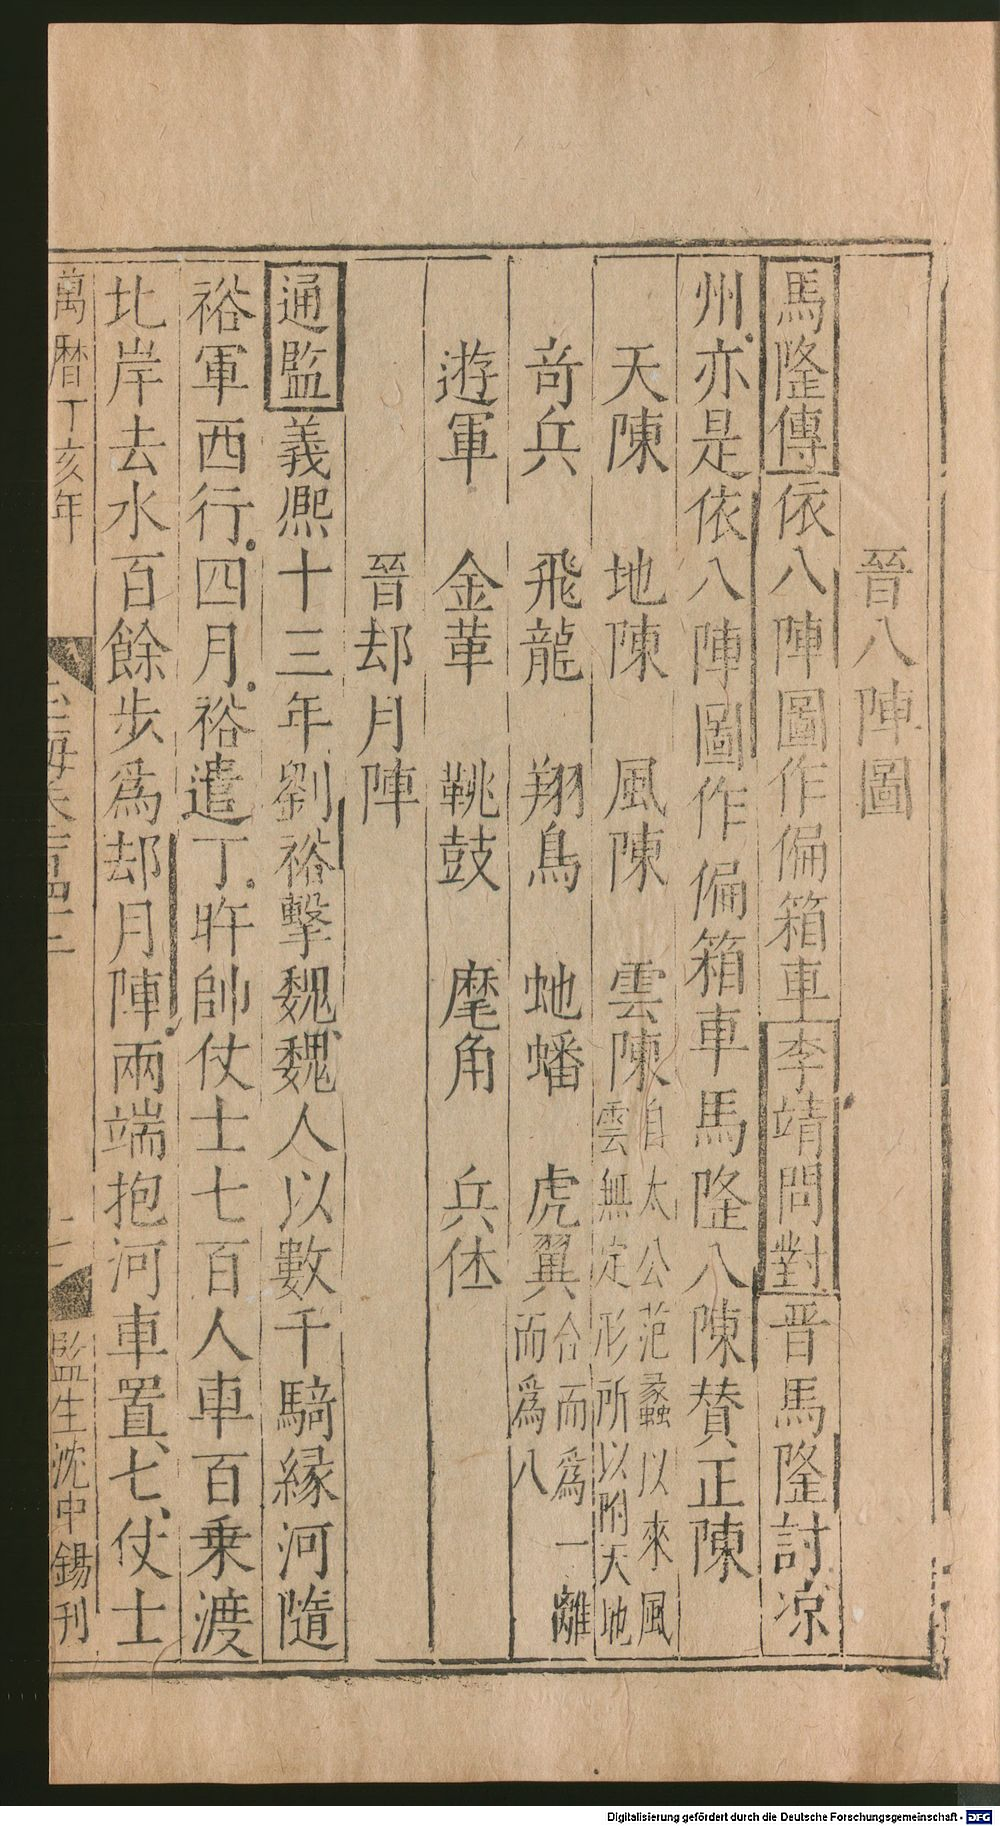 晉八陣圖
馬隆傳依八陣圖作偏箱車李靖問對晋馬隆討凉
州亦是依八陣圖作偏箱車馬隆八陳贊正陳
天陳 地陳 風陳 雲陳自太公范蠡以來風
雲無定形所以附天地
竒兵 飛龍 翔鳥 虵蟠 虎翼合而爲一離
而爲八
遊軍 金革 鞉鼓 麾角 兵体
晉却月陣
通監義熈十三年劉裕擊魏魏人以數千騎緣河隨
裕軍西行四月裕遣丁旿帥仗士七百人車百乗渡
北岸去水百餘步爲却月陣兩端抱河車置七仗士
萬曆丁亥年
監生沈中錫刊
Digitalisierung gefördert durch die Deutsche Forschungsgemeinschaft - DFG